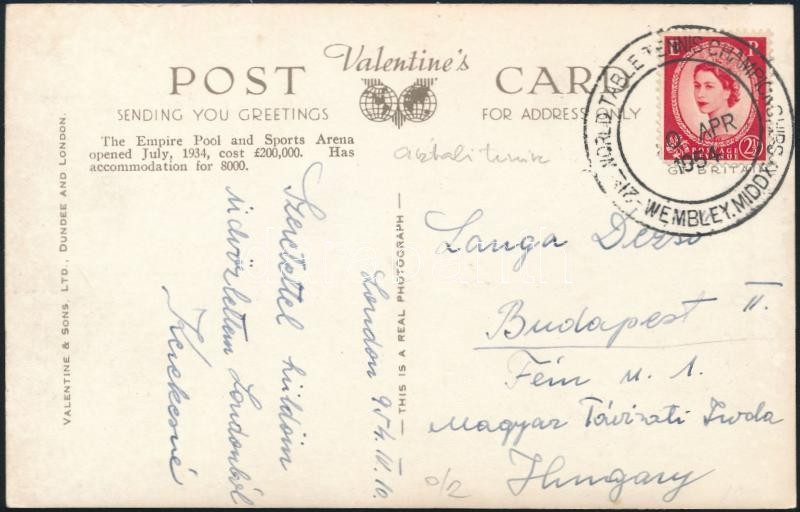 Valentine's
POST CARD
SENDING YOU GREETINGS
FOR ADDRESS ONLY
The Empire Pool and Sports Arena
opened July, 1934, cost £200,000. Has
accommodation for 8000.
asztali tenisz
WORLD TABLE TENNIS CHAMPIONSHIPS
WEMBLEY. MIDDX
APR
1954
London 954. IV. 10.
Szeretettel küldöm
üdvözletem Londonból
Kerekesné
THIS IS A REAL PHOTOGRAPH
VALENTINE & SONS, LTD., DUNDEE AND LONDON.
Langa Dezső
Budapest II.
Fém u. 1.
Magyar Távirati Iroda
Hungary
0/2